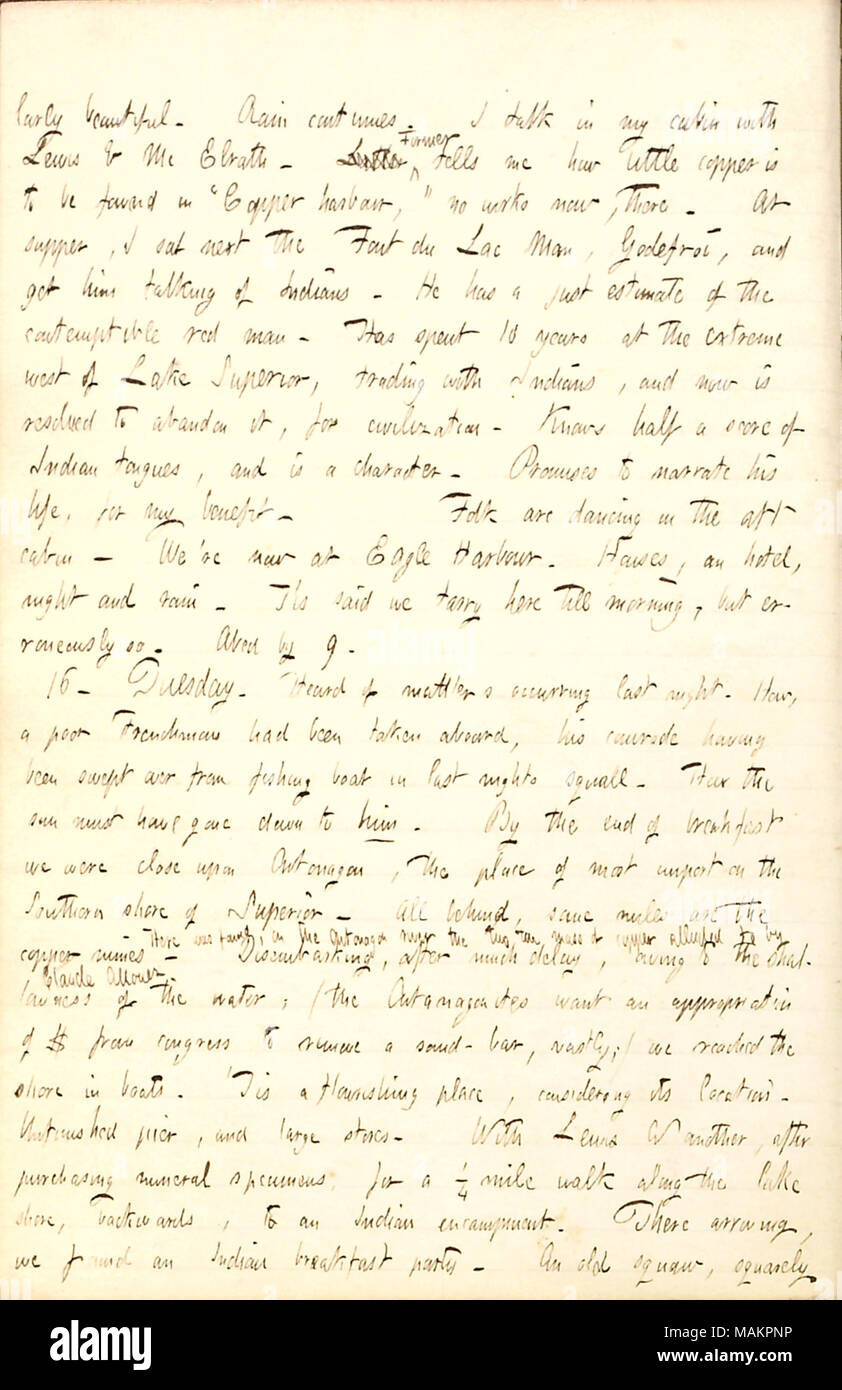 larly beautiful. Rain continues. I talk in my cabin with
Lewis & Mc Elrath. Latter Former tells me how little copper is
to be found in "Copper harbour," no works now, there. At
supper, I sat next the Font du Lac Man, Godefroi, and
get him talking of Indians. He has a just estimate of the
contemptible red man. Has spent 10 years at the extreme
west of Lake Superior, trading with Indians, and now is
resolved to abandon it, for civilization. Knows half a score of
Indian tongues, and is a character. Promises to narrate his
life, for my benefit. Folk are dancing in the aft
cabin — We're now at Eagle Harbour. Houses, an hotel,
night and rain. 'Tis said we tarry here till morning, but er-
roneously so. Abed by 9.
16 - Tuesday. Heard of matters occurring last night. How,
a poor Frenchman had been taken aboard, his comrade having
been swept over from fishing boat in last nights squall. How the
sun must have gone down to him. By the end of breakfast
we were close upon Ontonagon, the place of most import on the
Southern shore of Superior - All behind, some miles are the
There was found, in the Ontonagon river the two ton mass of copper alluded to by
copper mines - Disembarking, after much delay, owing to the shal-
Claude Allouez.
lowness of the water; (the Ontonagonites want an appropriation
of $ from congress to remove a sand-bar, vastly;) we reached the
shore in boats. 'Tis a flourishing place, considering its location.
Unfinished pier, and large stores. With Lewis & another, after
purchasing mineral specimens, for a ¼ mile walk along the lake
shore, backwards, to an Indian encampment. There arriving,
we found an Indian breakfast party - An old squaw, squarely
alamy
Image ID: MAKPNP
www.alamy.com